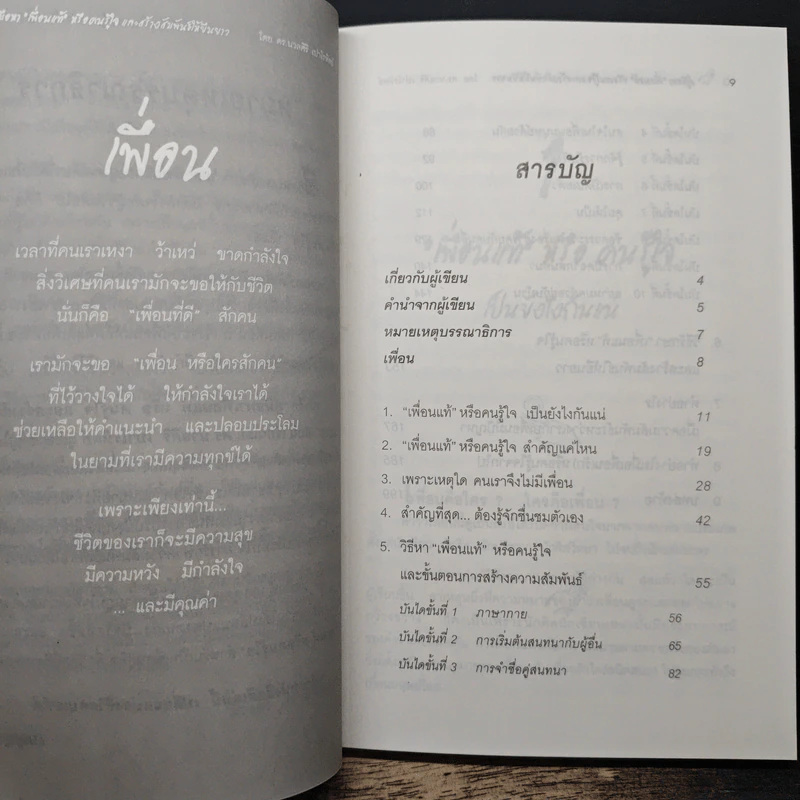 "เพื่อนแท้" หรือคนรู้ใจ และสร้างสัมพันธ์ให้ยืนยาว
โดย ดร.นวลศิริ เปาโรหิตย์
เพื่อน
เวลาที่คนเราเหงา ว้าเหว่ ขาดกำลังใจ
สิ่งวิเศษที่คนเรามักจะขอให้กับชีวิต
นั่นก็คือ "เพื่อนที่ดี" สักคน
เรามักจะขอ "เพื่อน หรือใครสักคน"
ที่ไว้วางใจได้ ให้กำลังใจเราได้
ช่วยเหลือให้คำแนะนำ และปลอบประโลม
ในยามที่เรามีความทุกข์ได้
เพราะเพียงเท่านี้...
ชีวิตของเราก็จะมีความสุข
มีความหวัง มีกำลังใจ
... และมีคุณค่า
๑
สารบัญ
เกี่ยวกับผู้เขียน 4
คำนำจากผู้เขียน 5
หมายเหตุบรรณาธิการ 7
เพื่อน 8
1. "เพื่อนแท้" หรือคนรู้ใจ เป็นยังไงกันแน่ 11
2. "เพื่อนแท้" หรือคนรู้ใจ สำคัญแค่ไหน 19
3. เพราะเหตุใด คนเราจึงไม่มีเพื่อน 28
4. สำคัญที่สุด... ต้องรู้จักชื่นชมตัวเอง 42
5. วิธีหา "เพื่อนแท้" หรือคนรู้ใจ
และขั้นตอนการสร้างความสัมพันธ์ 55
บันไดขั้นที่ 1 ภาษากาย 56
บันไดขั้นที่ 2 การเริ่มต้นสนทนากับผู้อื่น 65
บันไดขั้นที่ 3 การจำชื่อคู่สนทนา 82